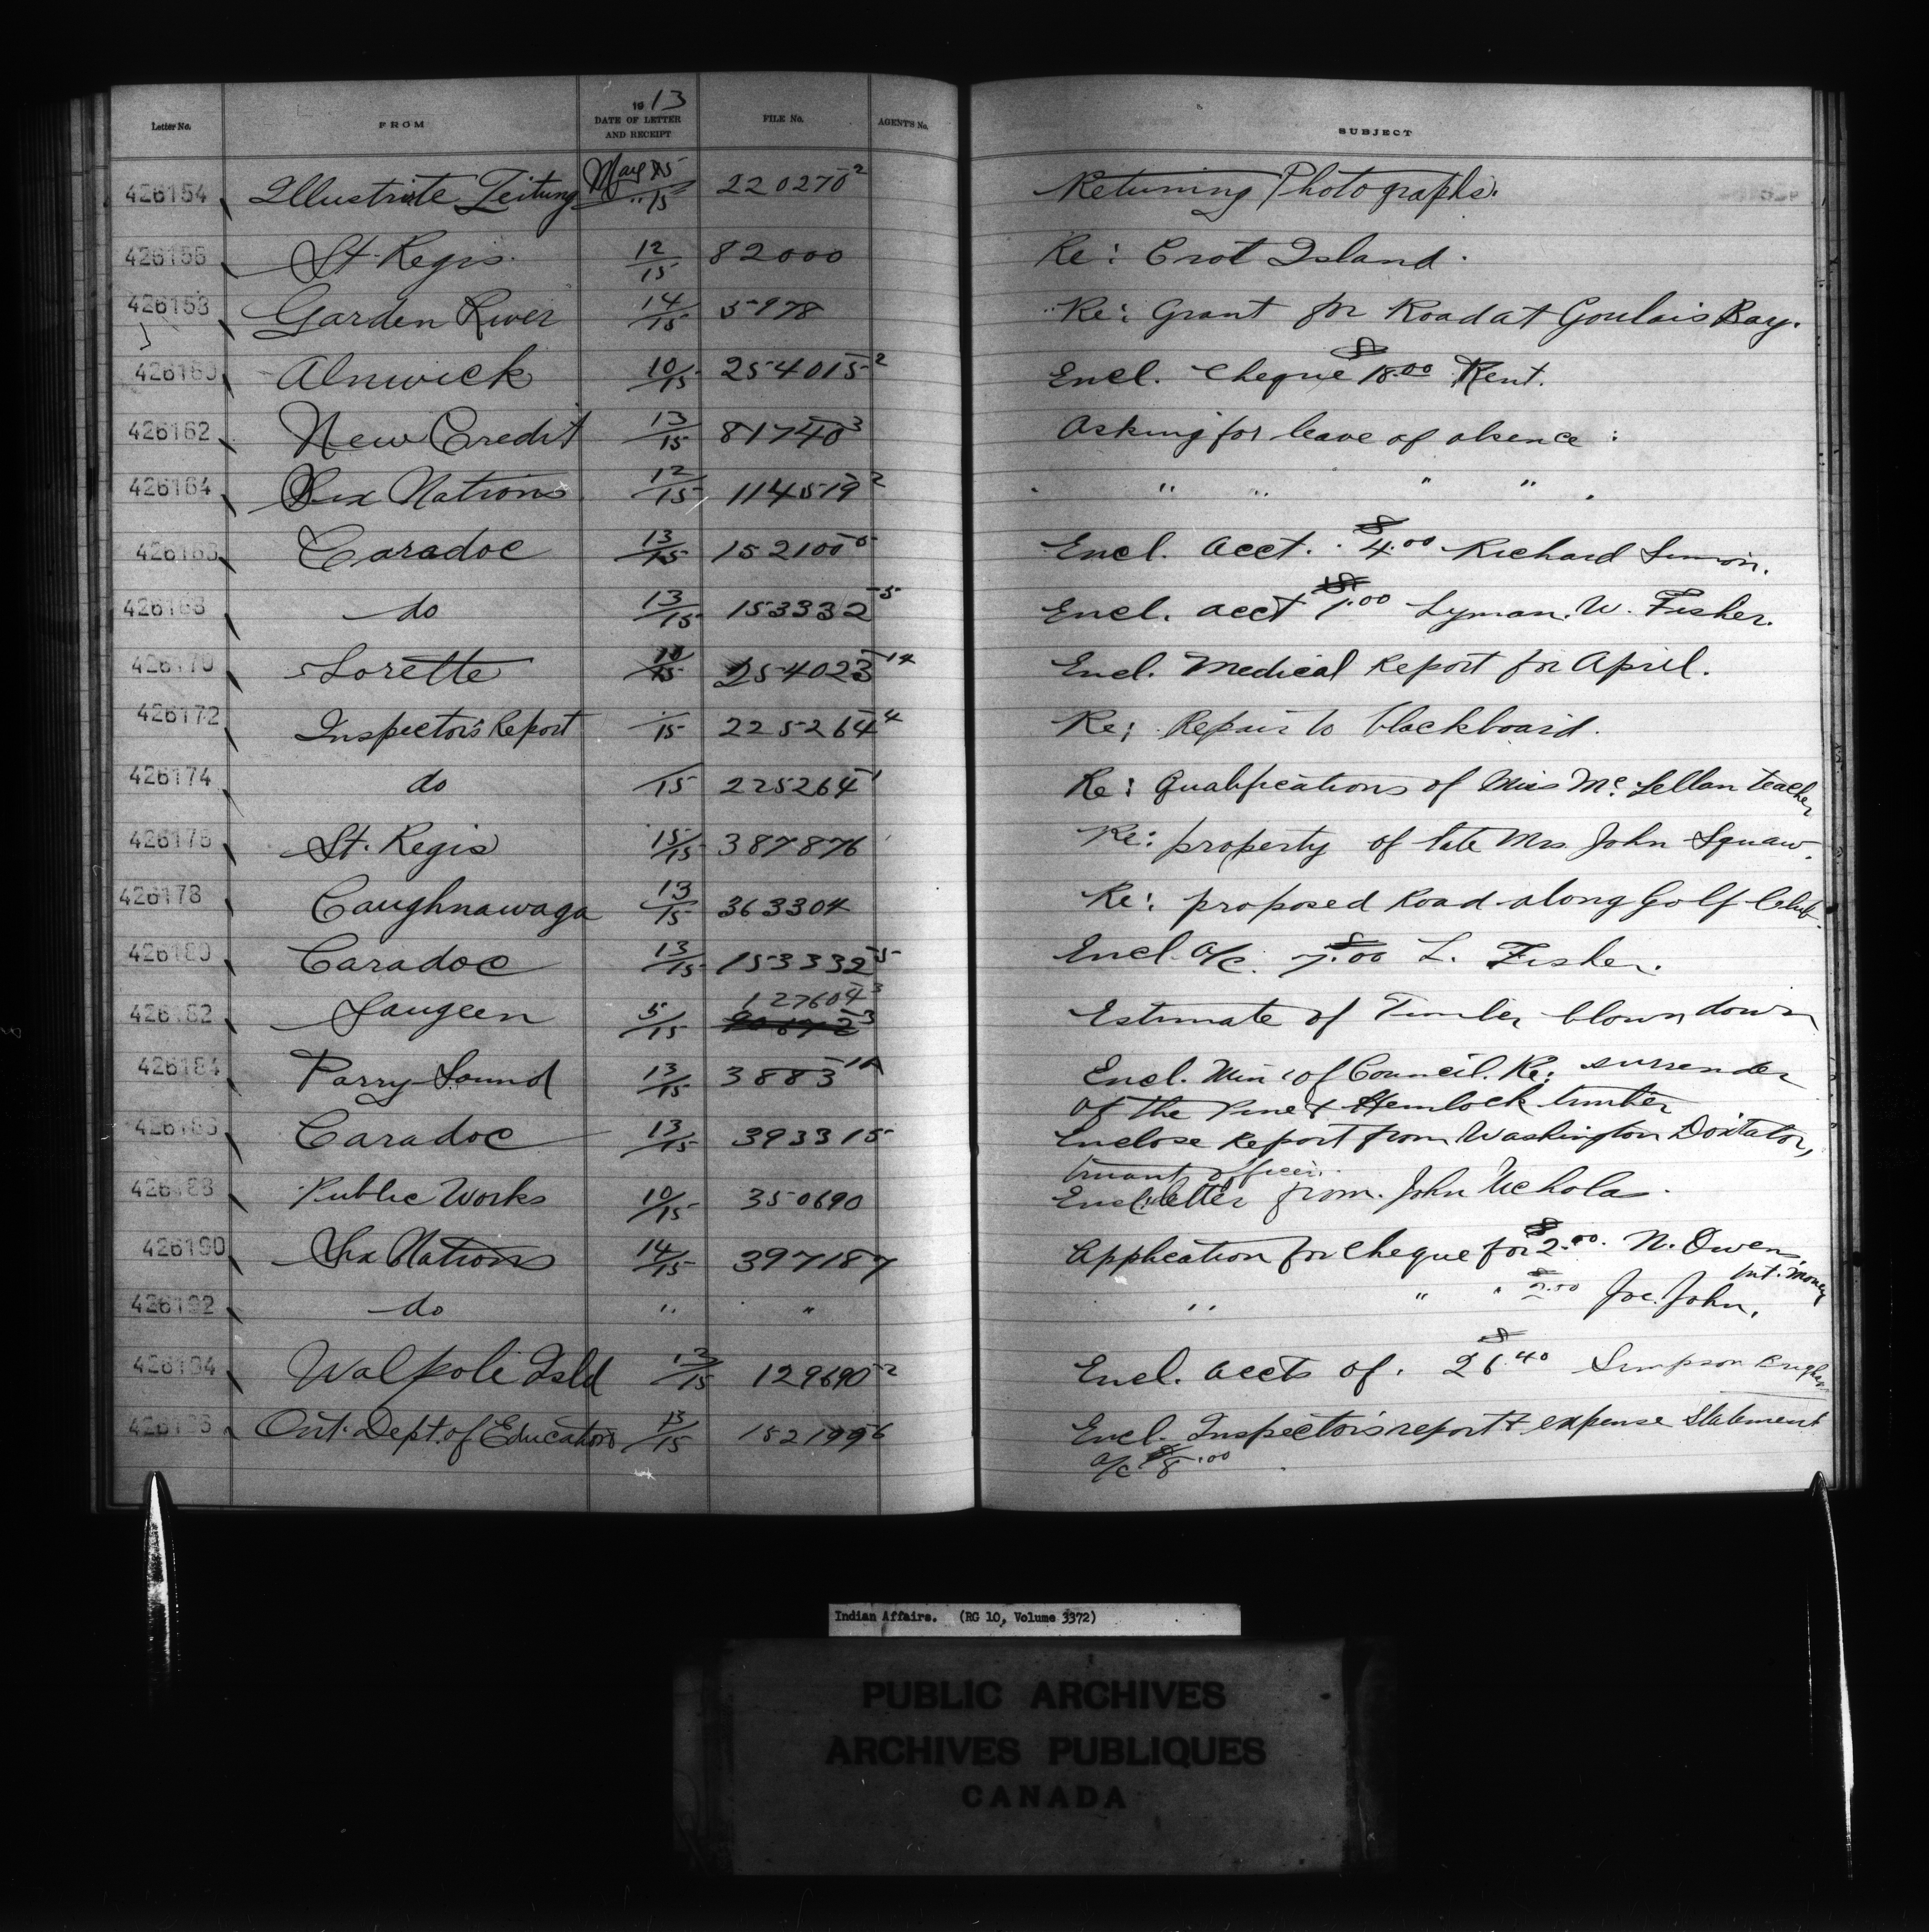 Letter No. FROM 1913 DATE OF LETTER AND RECEIPT FILE No. AGENT'S No. SUBJECT
426154 Illustrirte Zeitung May 15 / " 15 220270-2 Returning Photographs.
426156 St. Regis. 12/15 82000 Re: Crot Island.
426158 Garden River 14/15 5978 Re: Grant for Road at Goulais Bay.
426160 Alnwick 10/15 254015-2 Encl. Cheque $18.00 Rent.
426162 New Credit 13/15 81740-3 Asking for leave of absence :
426164 Six Nations 12/15 114519-2 " " " "
426166 Caradoc 13/15 152100-5 Encl. Acct. $4.00 Richard
426168 do 13/15 153332-5 Encl. acct Lyman. W. Fisher.
426170 Lorette 10/15 254023-14 Encl. Medical Report for April.
426172 Inspector's Report /15 225264-4 Re: Repair to blackboard.
426174 do /15 225264-1 Re: Qualifications of Miss McLellan teacher
426176 St. Regis 15/15 387876 Re: property of late Mrs John Squaw.
426178 Caughnawaga 13/15 363304 Re: proposed Road along Golf Club.
426180 Caradoc 13/15 153332-5 Encl a/c. $7.00 L. Fisher.
426182 Saugeen 5/15 127604-3 Estimate of Timber blown down
426184 Parry Sound 13/15 3883-1A Encl. Min: of Council. Re: surrender
of the Pine & Hemlock timber
426186 Caradoc 13/15 393315 Enclose Report from Washington Doxtator,
truant officer.
426188 Public Works 10/15 350690 Encl. letter from John Nicholas.
426190 Six Nations 14/15 397187 Application for cheque for $2.00. N. Owens,
Int. Money
426192 do " " " " " Joe. John.
426194 Walpole Isld 13/15 129690-2 Encl. accts of. $26.40 Simpson
426196 Ont. Dept. of Education 13/15 152199-6 Encl. Inspector's report & expense statement
a/c $8.00
Indian Affairs. (RG 10, Volume 3372)
PUBLIC ARCHIVES
ARCHIVES PUBLIQUES
CANADA